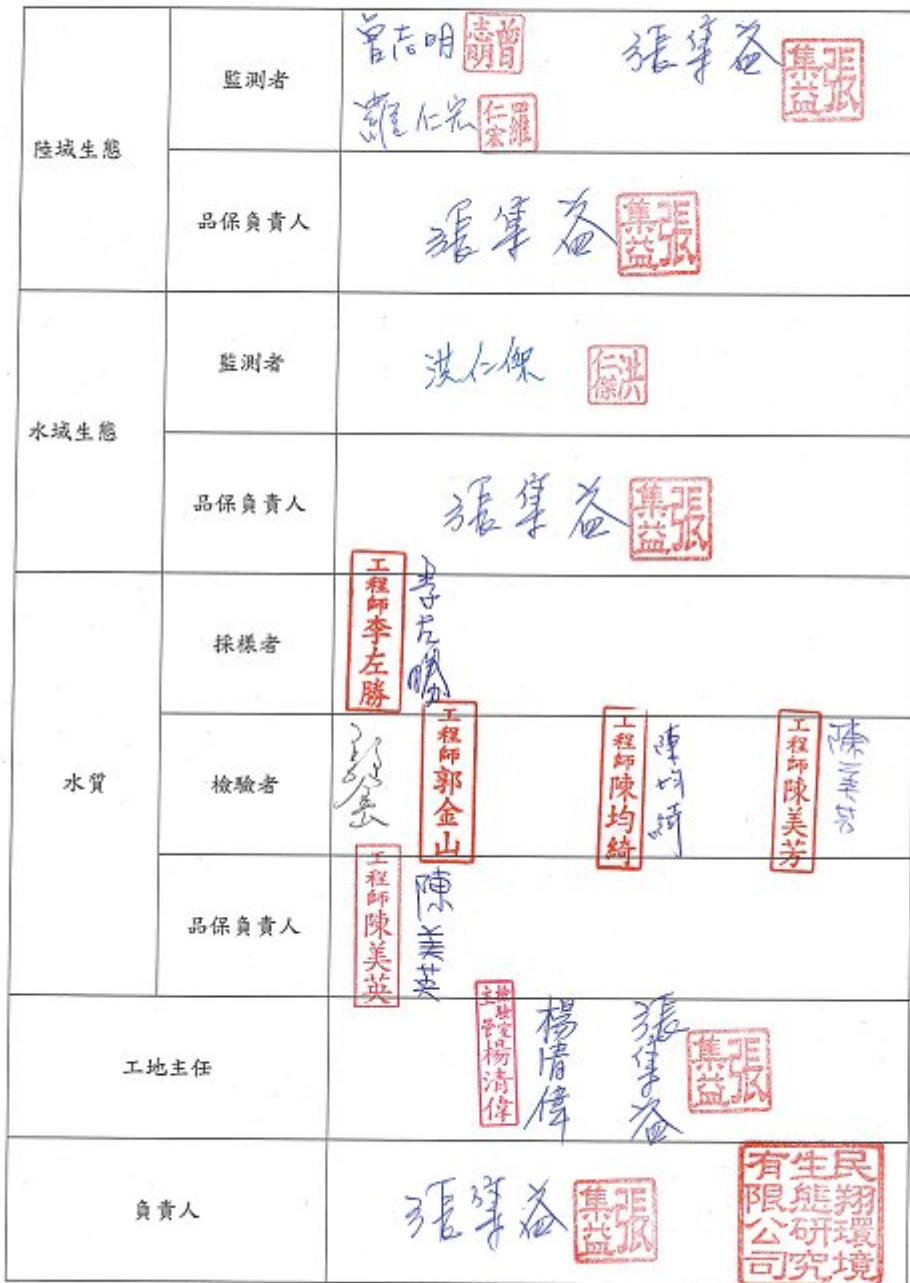 陸域生態
監測者
曾志明 曾志明 張集益 張集益
羅仁宏 羅仁宏
品保負責人
張集益 張集益
水域生態
監測者
洪仁傑 洪仁傑
品保負責人
張集益 張集益
水質
採樣者
工程師李左勝 李左勝
檢驗者
郭金山 工程師郭金山 工程師陳均綺 陳均綺 工程師陳美芳 陳美芳
品保負責人
工程師陳美英 陳美英
工地主任
檢驗室主管楊清偉 楊清偉 張集益 張集益
負責人
張集益 張集益 民翔環境生態研究有限公司